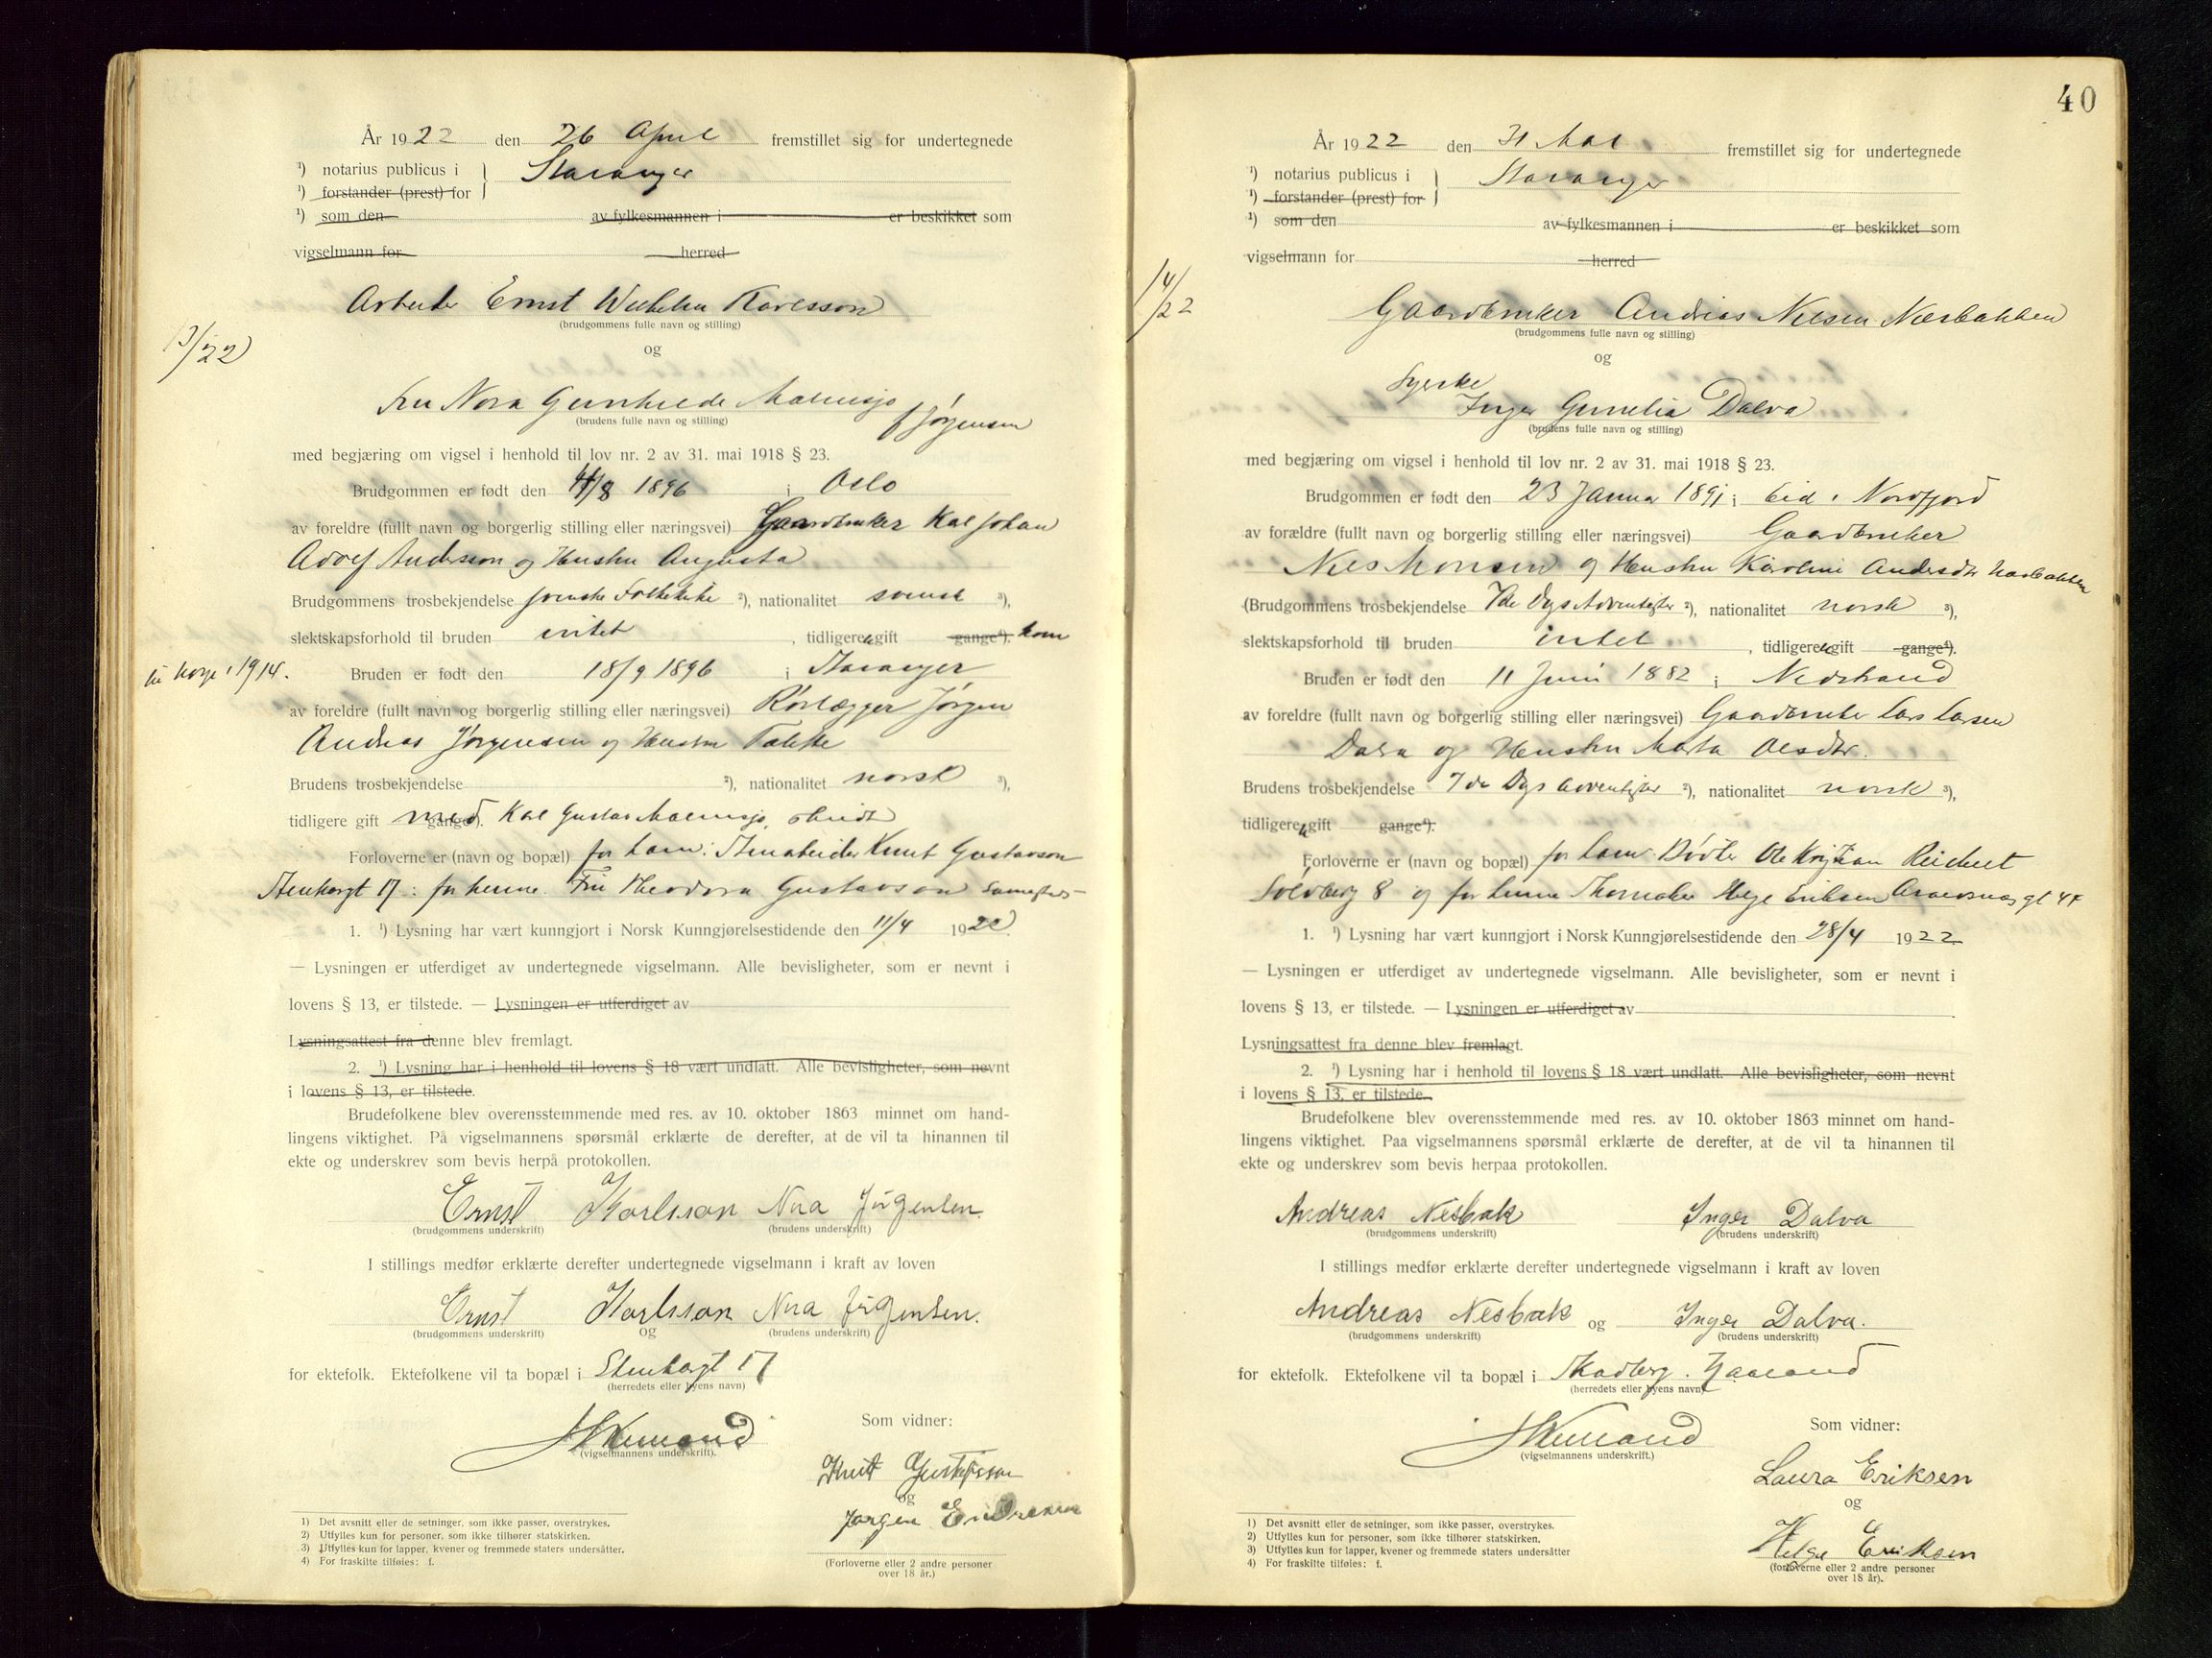 År 1922 den 26 April fremstillet sig for undertegnede
¹) notarius publicus i } Stavanger
¹) forstander (prest) for
¹) som den av fylkesmannen i er beskikket som
vigselmann for herred
Arbeider Ernst Wilhelm Karlsson
(brudgommens fulle navn og stilling)
13/22
og
Fru Nora Gunhilde Malmsjo f Jørgensen
(brudens fulle navn og stilling)
med begjæring om vigsel i henhold til lov nr. 2 av 31. mai 1918 § 23.
Brudgommen er født den /8 1896 i Oslo
av foreldre (fullt navn og borgerlig stilling eller næringsvei) Gaardbruker Karl Johan
Adolf Andersson og Hustru Augusta
Brudgommens trosbekjendelse svenske Folkekirke ²), nationalitet svensk ³),
slektskapsforhold til bruden intet , tidligere u gift gange⁴). kom
til Norge i 1914.
Bruden er født den 18/9 1896 i Stavanger
av foreldre (fullt navn og borgerlig stilling eller næringsvei) Rørlægger Jørgen
Andreas Jørgensen og Hustru
Brudens trosbekjendelse ²), nationalitet norsk ³),
tidligere gift med gange⁴). Karl Gustav Malmsjo, skildt
Forloverne er (navn og bopæl) for ham: Stenarbeider Knut Gustavson
Stenhagt 17: for henne. Fru Theodora Gustavson samesteds-
1. ¹) Lysning har vært kunngjort i Norsk Kunngjørelsestidende den 11/4 1922.
— Lysningen er utferdiget av undertegnede vigselmann. Alle bevisligheter, som er nevnt i
lovens § 13, er tilstede. — Lysningen er utferdiget av
Lysningsattest fra denne blev fremlagt.
2. ¹) Lysning har i henhold til lovens § 18 vært undlatt. Alle bevisligheter, som nevnt
i lovens § 13, er tilstede.
Brudefolkene blev overensstemmende med res. av 10. oktober 1863 minnet om hand-
lingens viktighet. På vigselmannens spørsmål erklærte de derefter, at de vil ta hinannen til
ekte og underskrev som bevis herpå protokollen.
Ernst Karlsson Nora Jørgensen.
(brudgommens underskrift) (brudens underskrift)
I stillings medfør erklærte derefter undertegnede vigselmann i kraft av loven
Ernst Karlsson Nora Jørgensen.
(brudgommens underskrift) og (brudens underskrift)
for ektefolk. Ektefolkene vil ta bopæl i Stenhagt 17
(herredets eller byens navn)
(vigselmannens underskrift).
Som vidner:
Knut Gustafsson
og
Jørgen Endresen
(Forloverne eller 2 andre personer
over 18 år.)
1) Det avsnitt eller de setninger, som ikke passer, overstrykes.
2) Utfylles kun for personer, som ikke tilhører statskirken.
3) Utfylles kun for lapper, kvener og fremmede staters undersåtter.
4) For fraskilte tilføies: f.
40
År 1922 den 31 Mai fremstillet sig for undertegnede
¹) notarius publicus i } Stavanger
¹) forstander (prest) for
¹) som den av fylkesmannen i er beskikket som
vigselmann for herred
14/22
Gaardbruker Andreas Nilsen Nesbakken
(brudgommens fulle navn og stilling)
og
Syerske
Inger Gurnelia Dalva
(brudens fulle navn og stilling)
med begjæring om vigsel i henhold til lov nr. 2 av 31. mai 1918 § 23.
Brudgommen er født den 23 Januar 1891 i Eid i Nordfjord
av forældre (fullt navn og borgerlig stilling eller næringsvei) Gaardbruker
Nils Monsen og Hustru Karoline Andersdtr Nesbakken
(Brudgommens trosbekjendelse 7de Dags Adventister ²), nationalitet norsk ³),
slektskapsforhold til bruden intet , tidligere u gift gange⁴).
Bruden er født den 11 Juni 1882 i Nedstrand
av foreldre (fullt navn og borgerlig stilling eller næringsvei) Gaardbruker Lars Larsen
Dalva og Hustru Marta Olsdtr.
Brudens trosbekjendelse 7de Dags Adventister ²), nationalitet norsk ³),
tidligere u gift gange⁴).
Forloverne er (navn og bopæl) for ham: Bødker Ole Kristian Reichelt
Solvberg 8 og for henne Skomaker Helge Eriksen gt 44
1. ¹) Lysning har vært kunngjort i Norsk Kunngjørelsestidende den 28/4 1922
— Lysningen er utferdiget av undertegnede vigselmann. Alle bevisligheter, som er nevnt i
lovens § 13, er tilstede. — Lysningen er utferdiget av
Lysningsattest fra denne blev fremlagt.
2. ¹) Lysning har i henhold til lovens § 18 vært undlatt. Alle bevisligheter, som nevnt
i lovens § 13, er tilstede.
Brudefolkene blev overensstemmende med res. av 10. oktober 1863 minnet om hand-
lingens viktighet. Paa vigselmannens spørsmål erklærte de derefter, at de vil ta hinannen til
ekte og underskrev som bevis herpaa protokollen.
Andreas Nesbak Inger Dalva
(brudgommens underskrift) (brudens underskrift)
I stillings medfør erklærte derefter undertegnede vigselmann i kraft av loven
Andreas Nesbak og Inger Dalva.
(brudgommens underskrift) (brudens underskrift)
for ektefolk. Ektefolkene vil ta bopæl i Skadberg. Haaland
(herredets eller byens navn)
(vigselmannens underskrift.)
Som vidner:
Laura Eriksen
og
Helge Eriksen
(forloverne eller 2 andre personer
over 18 år).
1) Det avsnitt eller de setninger, som ikke passer, overstrykes.
2) Utfylles kun for personer, som ikke tilhører statskirken.
3) Utfylles kun for lapper, kvener og fremmede staters undersåtter
4) For fraskilte tilføies: f.